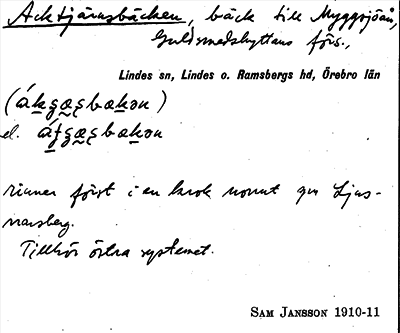 Acktjärnsbäcken, bäck till Myggsjöån,
Guldsmedshyttans förs.,
Lindes sn, Lindes o. Ramsbergs hd, Örebro län
el.
rinner först i en krok norrut gm Ljus-
narsberg.
Tillhör östra systemet.
SAM JANSSON 1910-11